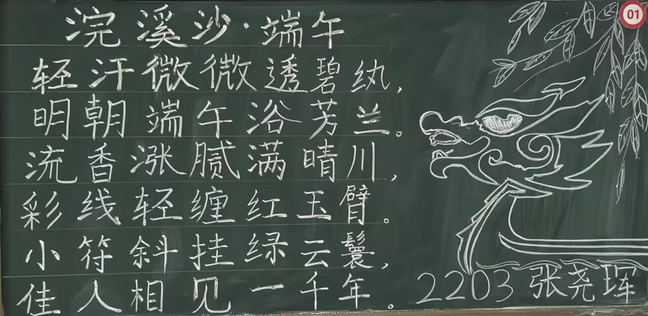 浣溪沙·端午
轻汗微微透碧纨,
明朝端午浴芳兰。
流香涨腻满晴川,
彩线轻缠红玉臂。
小符斜挂绿云鬟,
佳人相见一千年。
2203 张尧珲
01